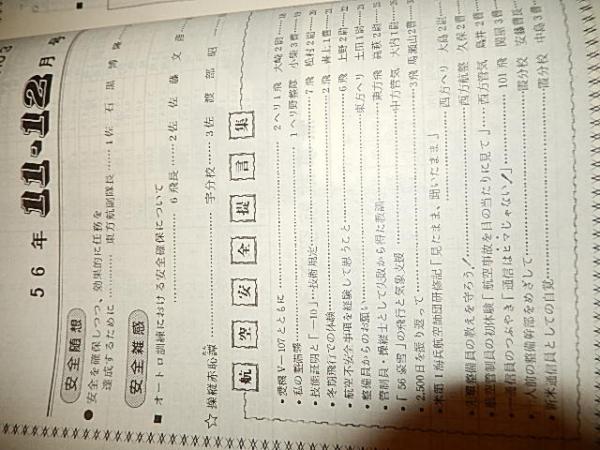 56年 11・12月号
安全随想
●安全を確保しつつ、効果的に任務を
達成するために…………東方航副隊長……1佐 石黒博
安全雑感
■オートロ訓練における安全確保について
…………6飛長……2佐 佐藤文
☆操縦赤恥譚…………宇分校……3佐 渡部昭
航空安全提言集
・愛機V-107とともに…………2ヘリ1飛 大崎2尉
・私の整備…………1ヘリ野整隊 小柴3曹
・技能証明と「-10」…技術規定…………7飛 松村2尉
・冬期飛行での体験…………2飛 井上1曹
・航空不安全事項を経験して思うこと…………6飛 上野2尉
・整備員からのお願い…………東方ヘリ 土田1尉
・管制員・操縦士として失敗から得た教訓…………東方飛 高萩2尉
・「56豪雪」の飛行と気象支援…………中方管気 大内1尉
・2,500日を振り返って…………3飛 馬瀬山2曹
・米第1海兵航空師団研修記「見たまま、聞いたまま」…………西方ヘリ 大島2尉
・先輩整備員の教えを守ろう！…………西方航整 久保2曹
・航空管制員の初体験「航空事故を目の当たりに見て」…………西方管気 鳥井2曹
・通信員のつぶやき「通信はヒマじゃない！」…………101飛 関屋3曹
・一人前の整備幹部をめざして…………霞分校 安藤曹長
・新米通信員としての自覚…………霞分校 中島3曹